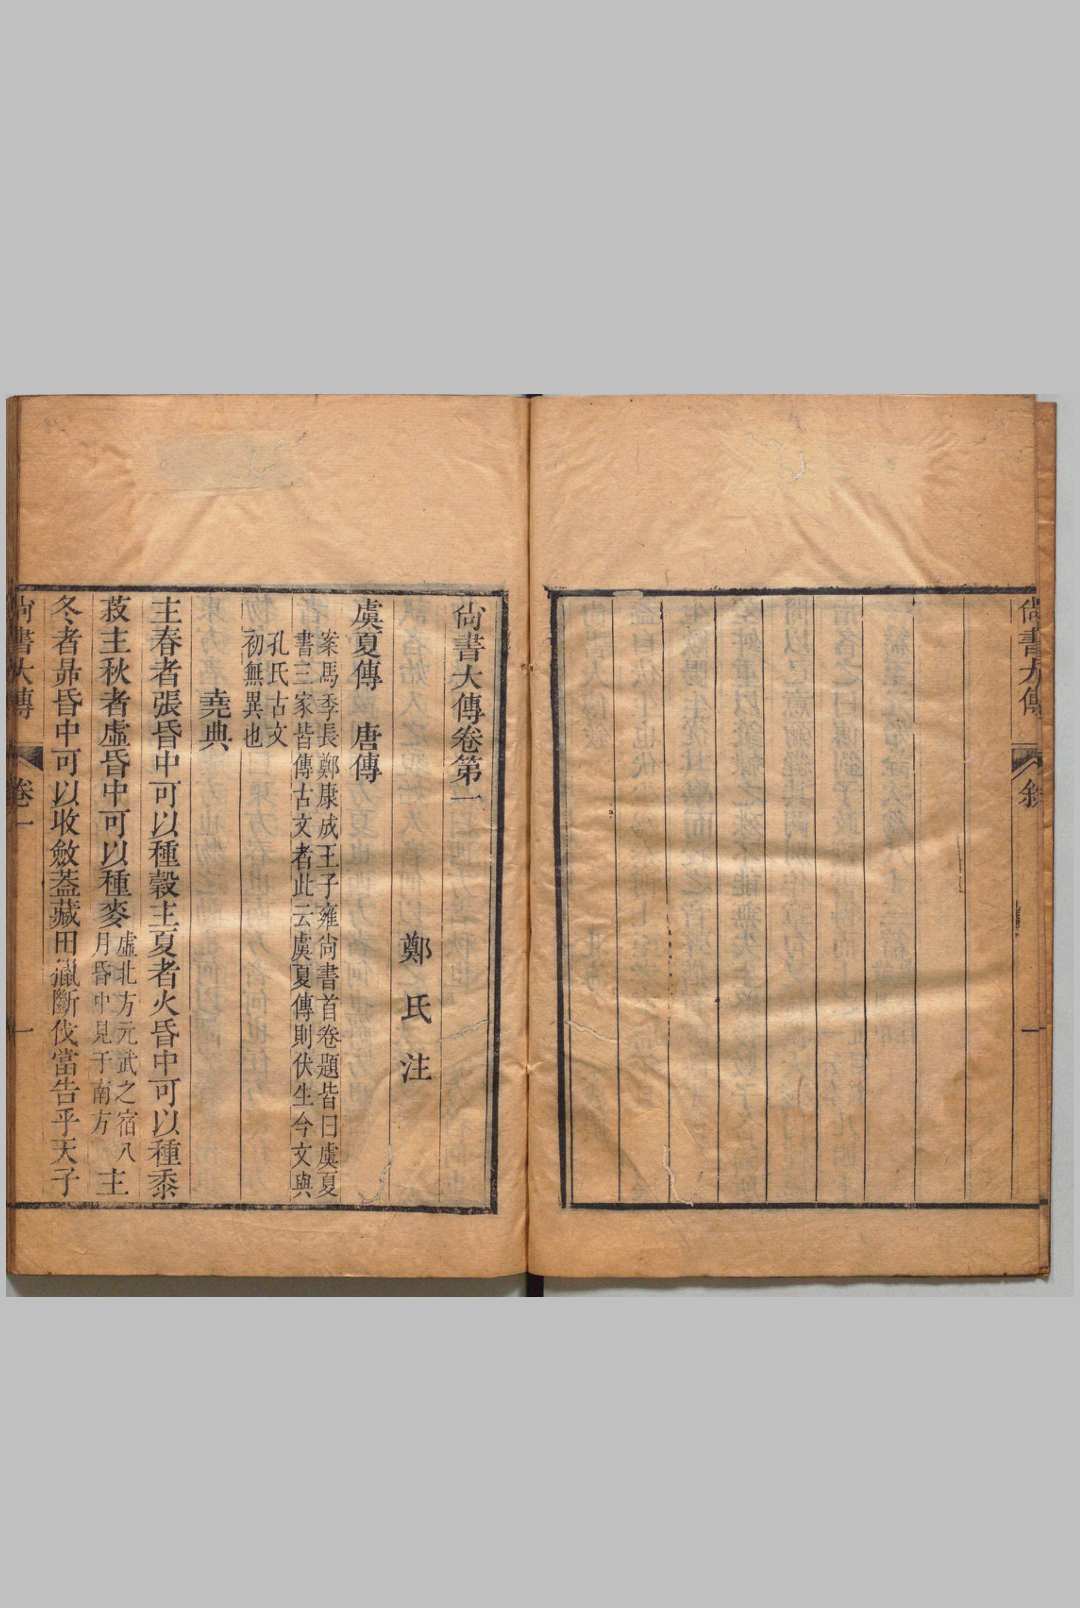 尚書大傳
敘
一
尚書大傳卷第一
鄭氏注
虞夏傳　唐傳
案馬季長鄭康成王子雍尚書首卷題皆曰虞夏
書三家皆傳古文者此云虞夏傳則伏生今文與
孔氏古文
初無異也
堯典
主春者張昏中可以種穀主夏者火昏中可以種黍
菽主秋者虛昏中可以種麥
虛北方元武之宿八
月昏中見于南方
主
冬者昴昏中可以收斂蓋藏田獵斷伐當告乎天子
尚書大傳
卷一
一